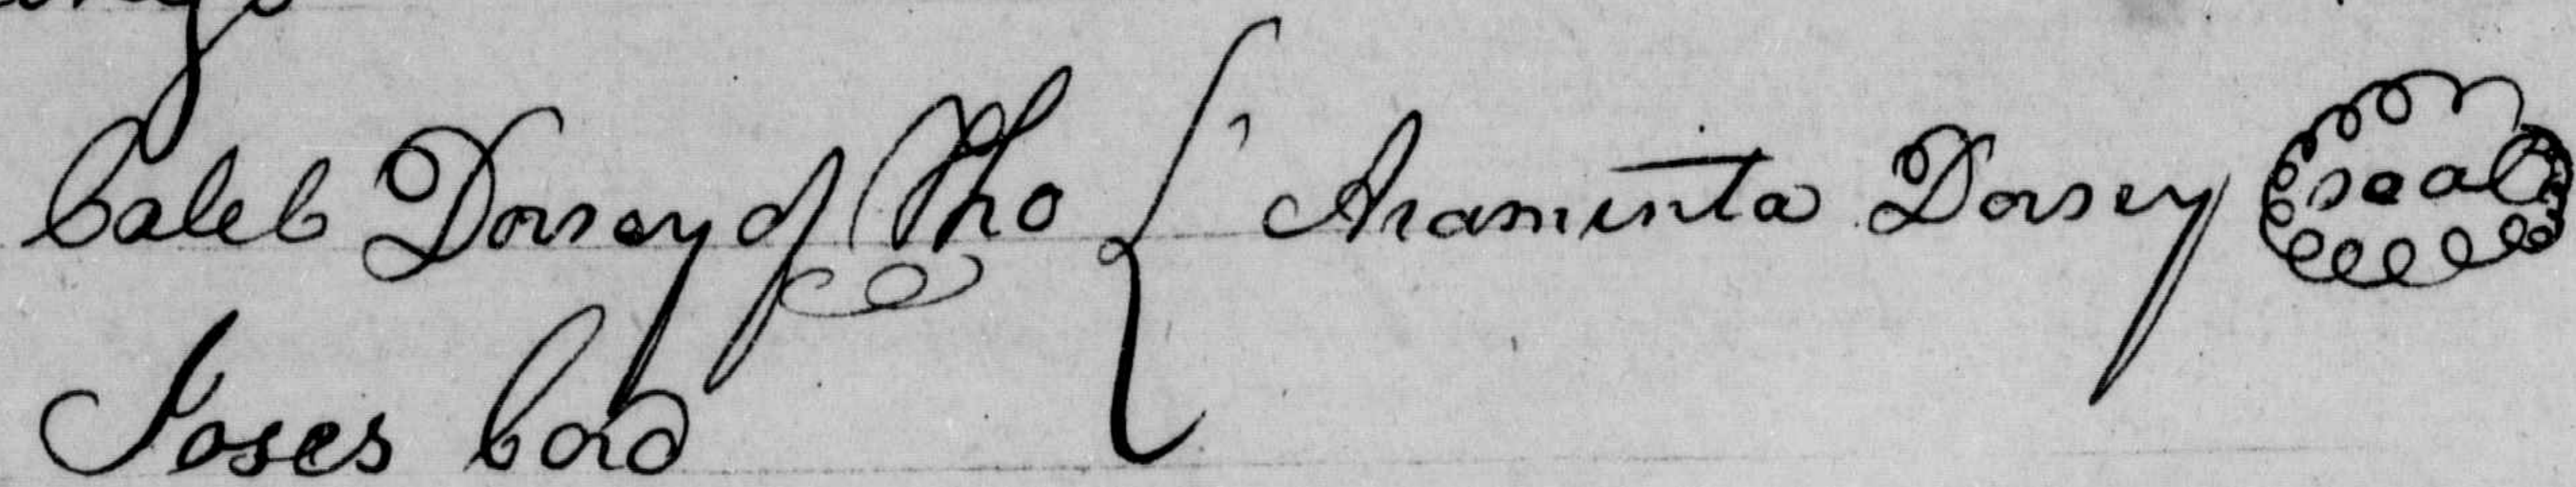 Caleb Dorsey of Tho { Araminta Dorsey seal
Joses Cord